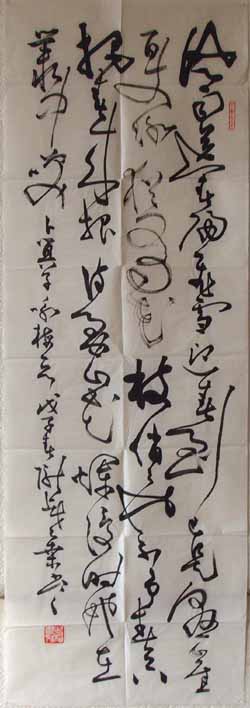 风雨送春归飞雪迎春到已是悬崖
百丈冰犹有花枝俏俏也不争春只
把春来报待到山花烂漫时她在
丛中笑卜算子咏梅 戊子春